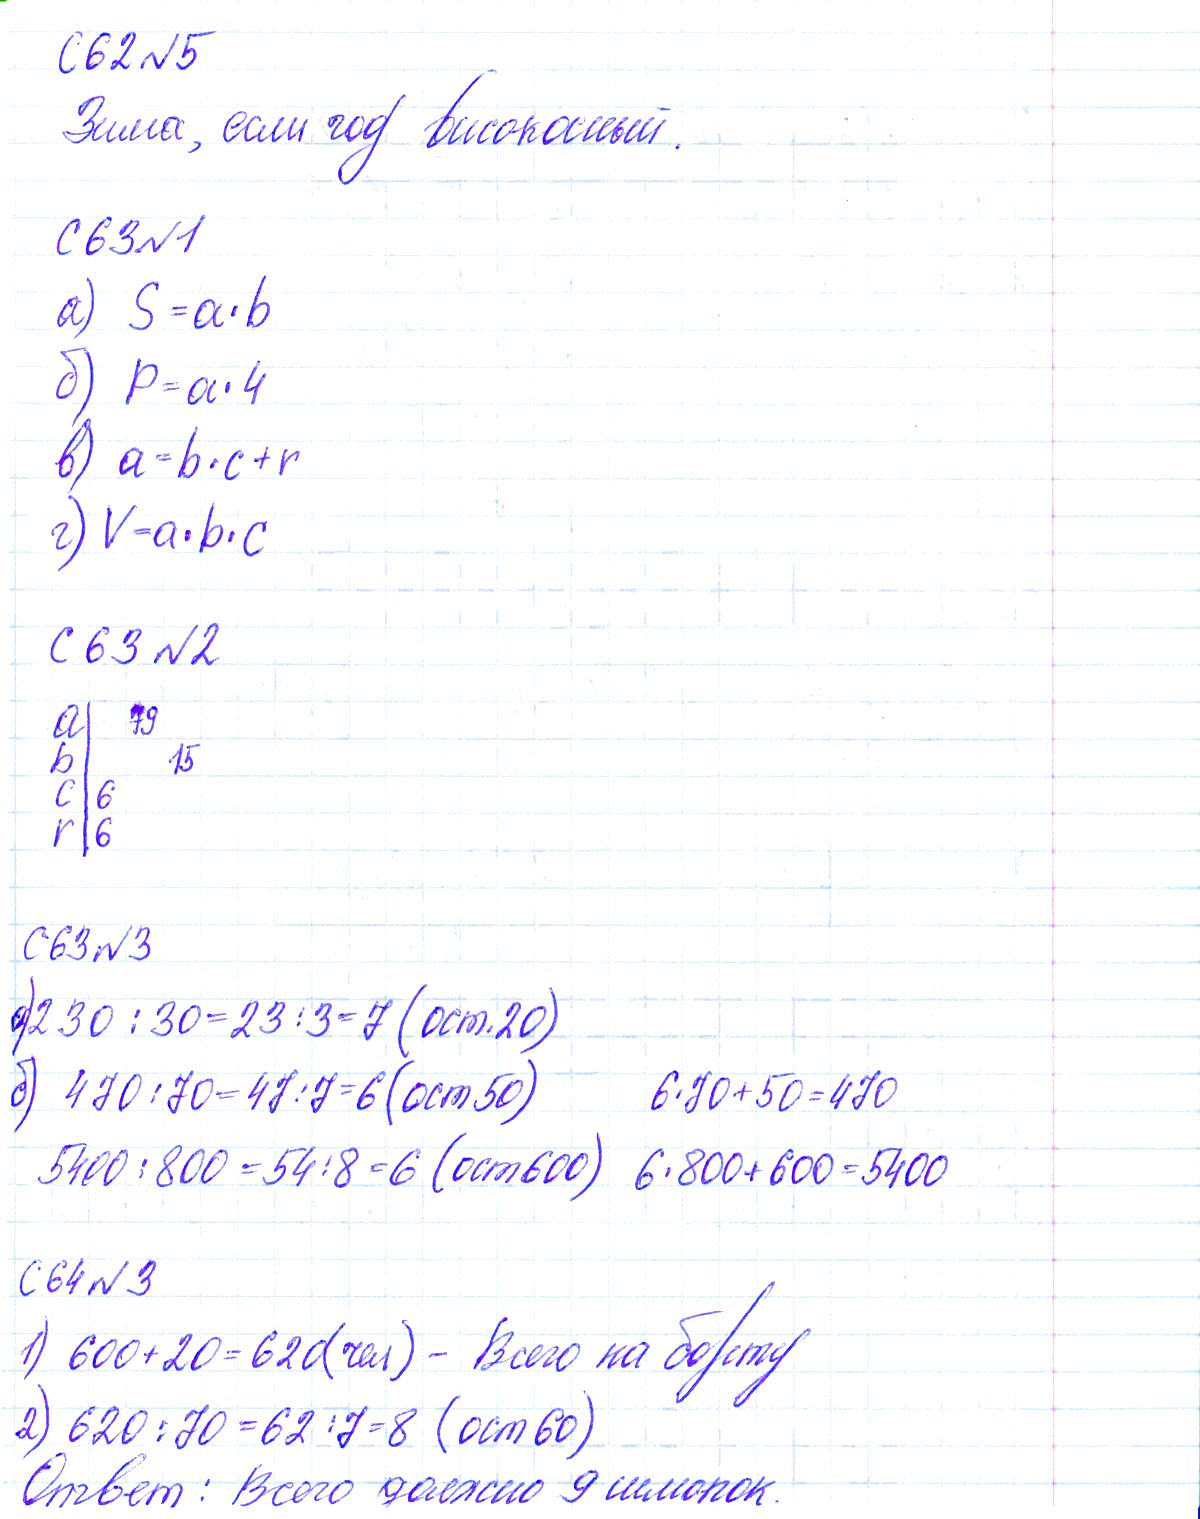 С62№5
Зима, если год високосный.
С63№1
а) S=a·b
б) P=a·4
в) a=b·c+r
г) V=a·b·c
С63№2
a 79
b 15
c 6
r 6
С63№3
а) 230:30=23:3=7(ост.20)
б) 470:70=47:7=6(ост50) 6·70+50=470
5400:800=54:8=6(ост600) 6·800+600=5400
С64№3
1) 600+20=620(чел) – Всего на борту
2) 620:70=62:7=8 (ост60)
Ответ: Всего должно 9 шлюпок.